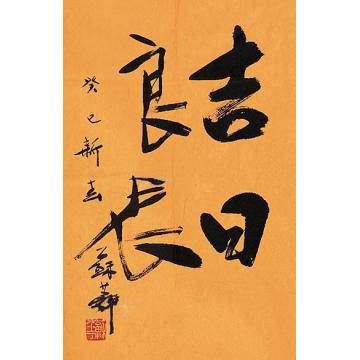 吉日
良辰
癸巳新春
蘇華